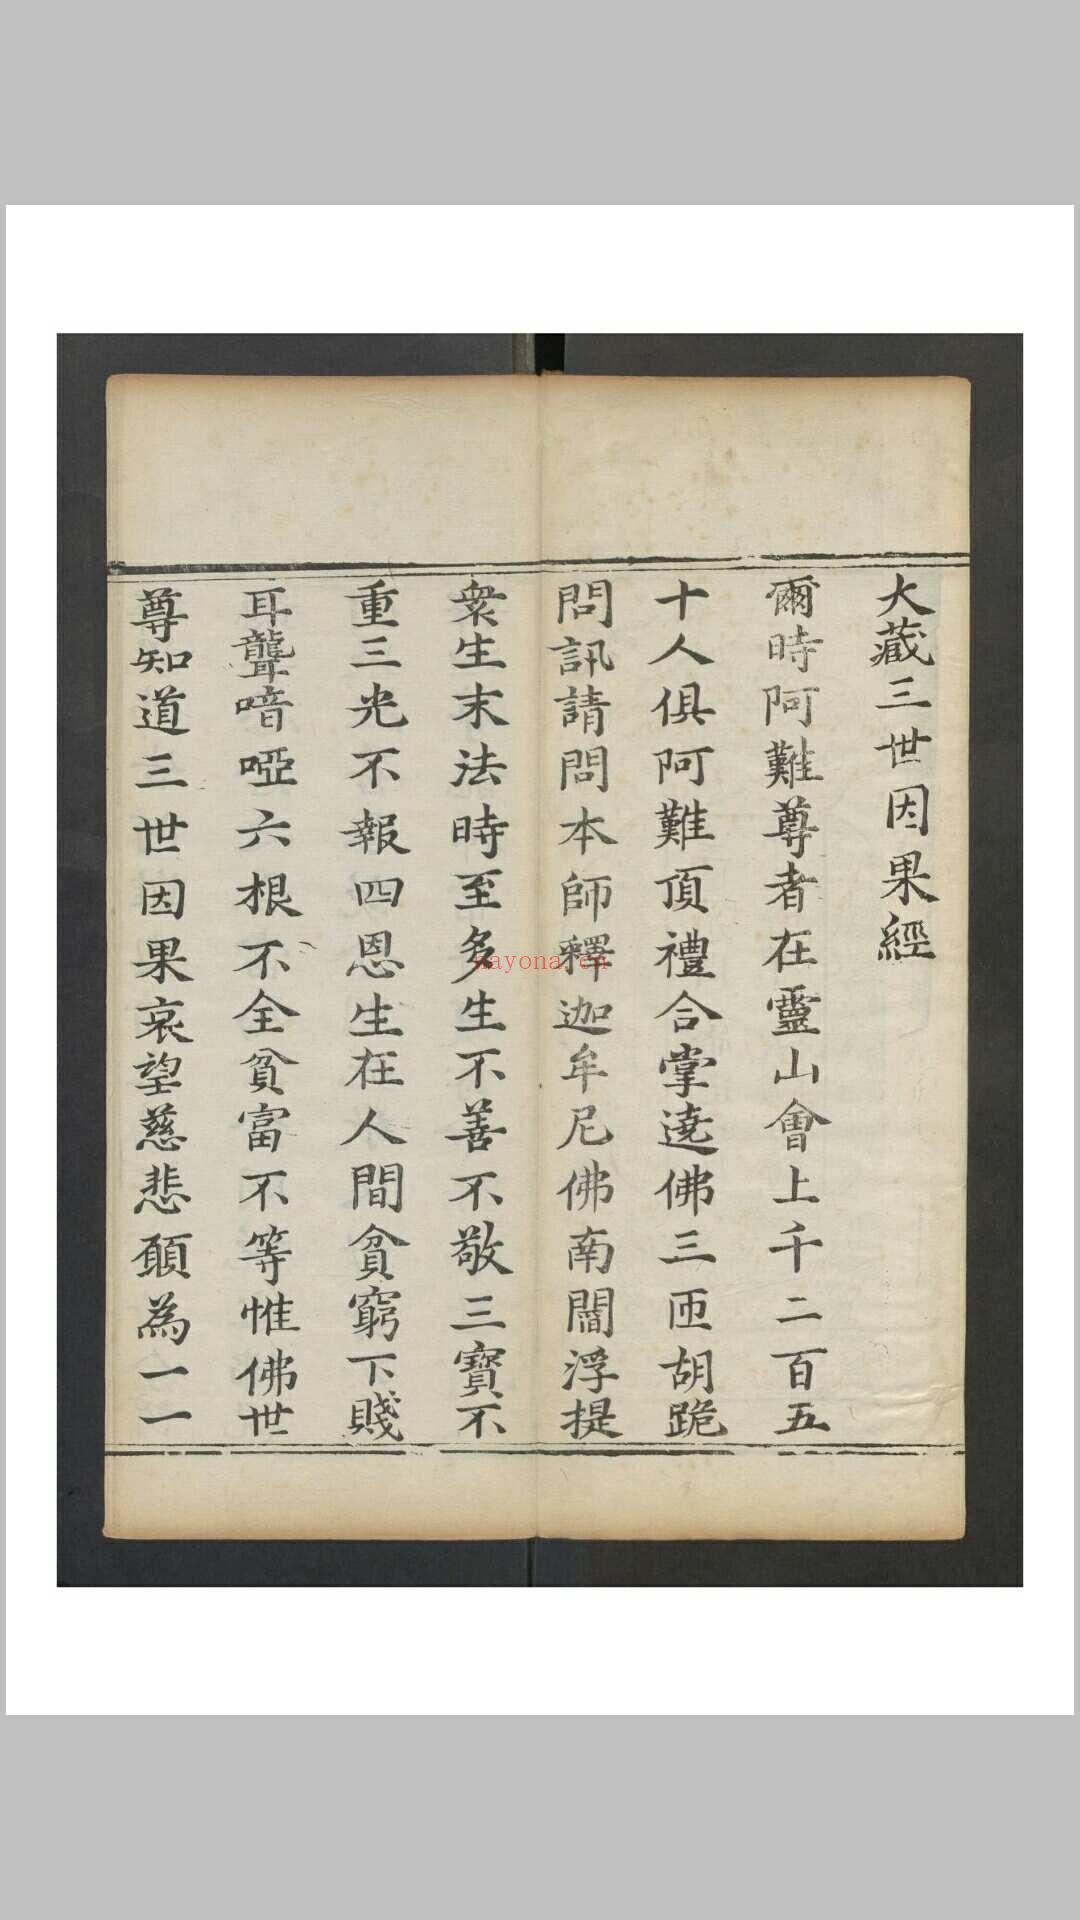 大藏三世因果經
爾時阿難尊者在靈山會上千二百五
十人俱阿難頂禮合掌遶佛三匝胡跪
問訊請問本師釋迦牟尼佛南閻浮提
衆生末法時至多生不善不敬三寶不
重三光不報四恩生在人間貧窮下賤
耳聾喑啞六根不全貧富不等惟佛世
尊知道三世因果哀望慈悲願為一一
nayona.cn